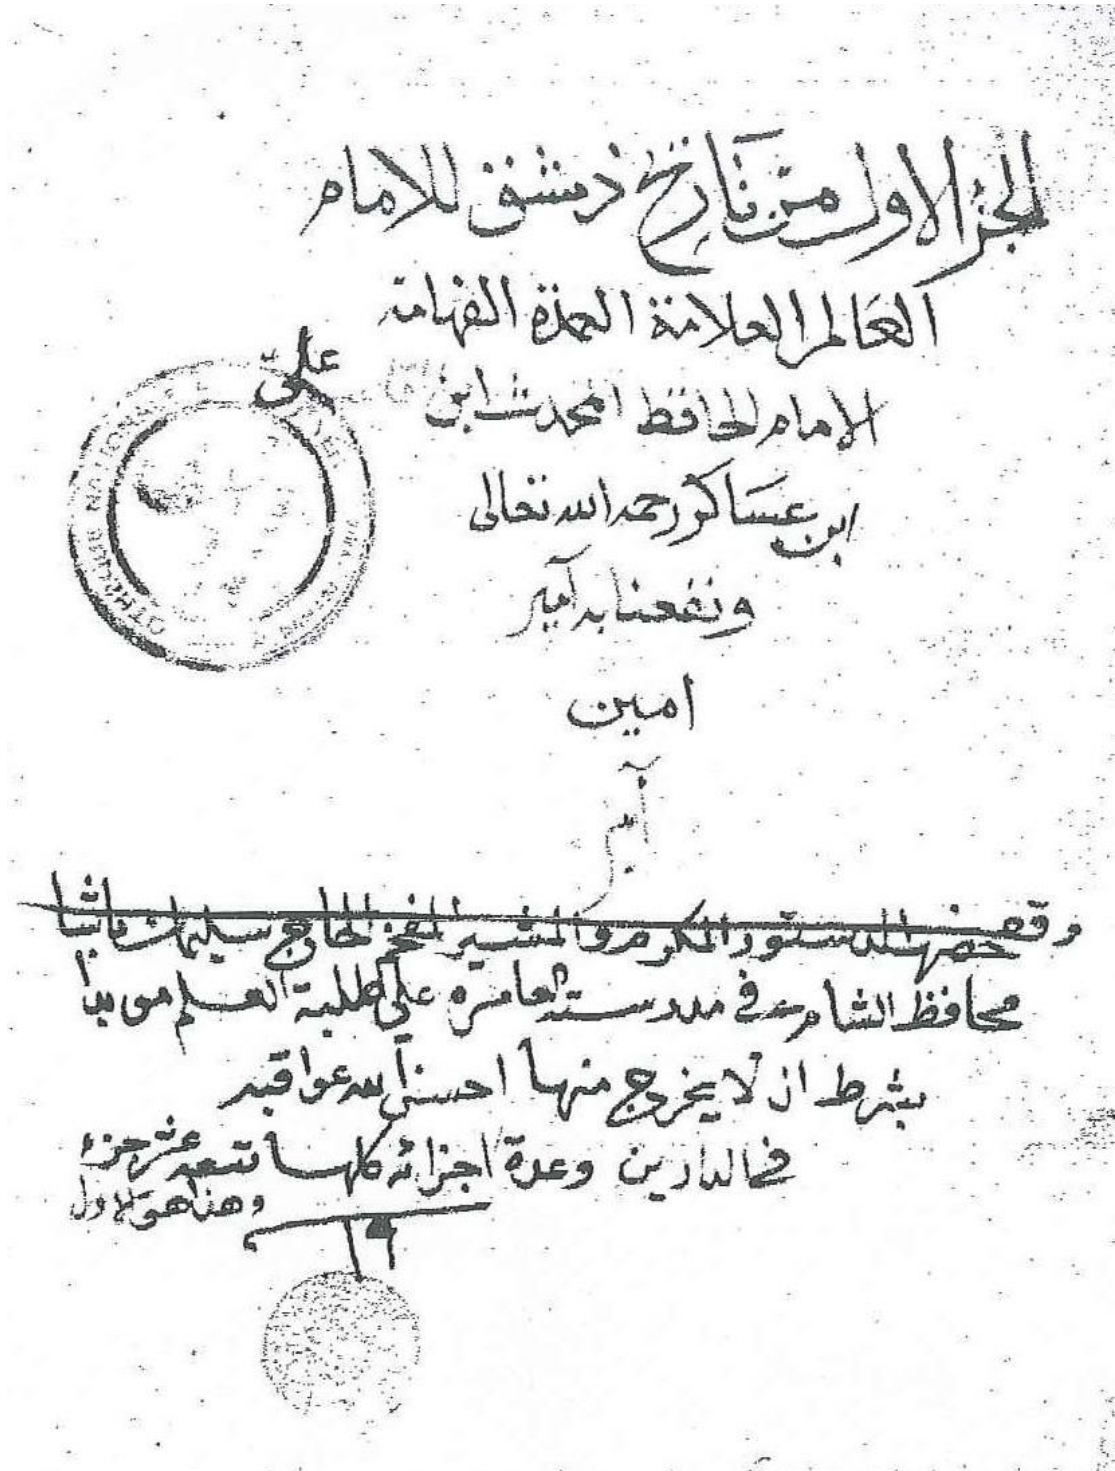 الجزء الاول من تاريخ دمشق للامام
العالم العلامة العمدة الفهامة
على
الامام الحافظ المحدث ابن
ابن عساكر رحمه الله تعالى
ونفعنا به آمين
امين
آمين
وقف حضرة الدستور المكرم والمشير المفخم الحاج سليمان باشا
محافظ الشام في مدرسته العامرة على طلبة العلم مويدا
بشرط ان لا يخرج منها احسن الله عواقبه
في الدارين وعدة اجزائه كلها تسعة عشر جزء
وهذا هو الاول
١٩
NATIONALE